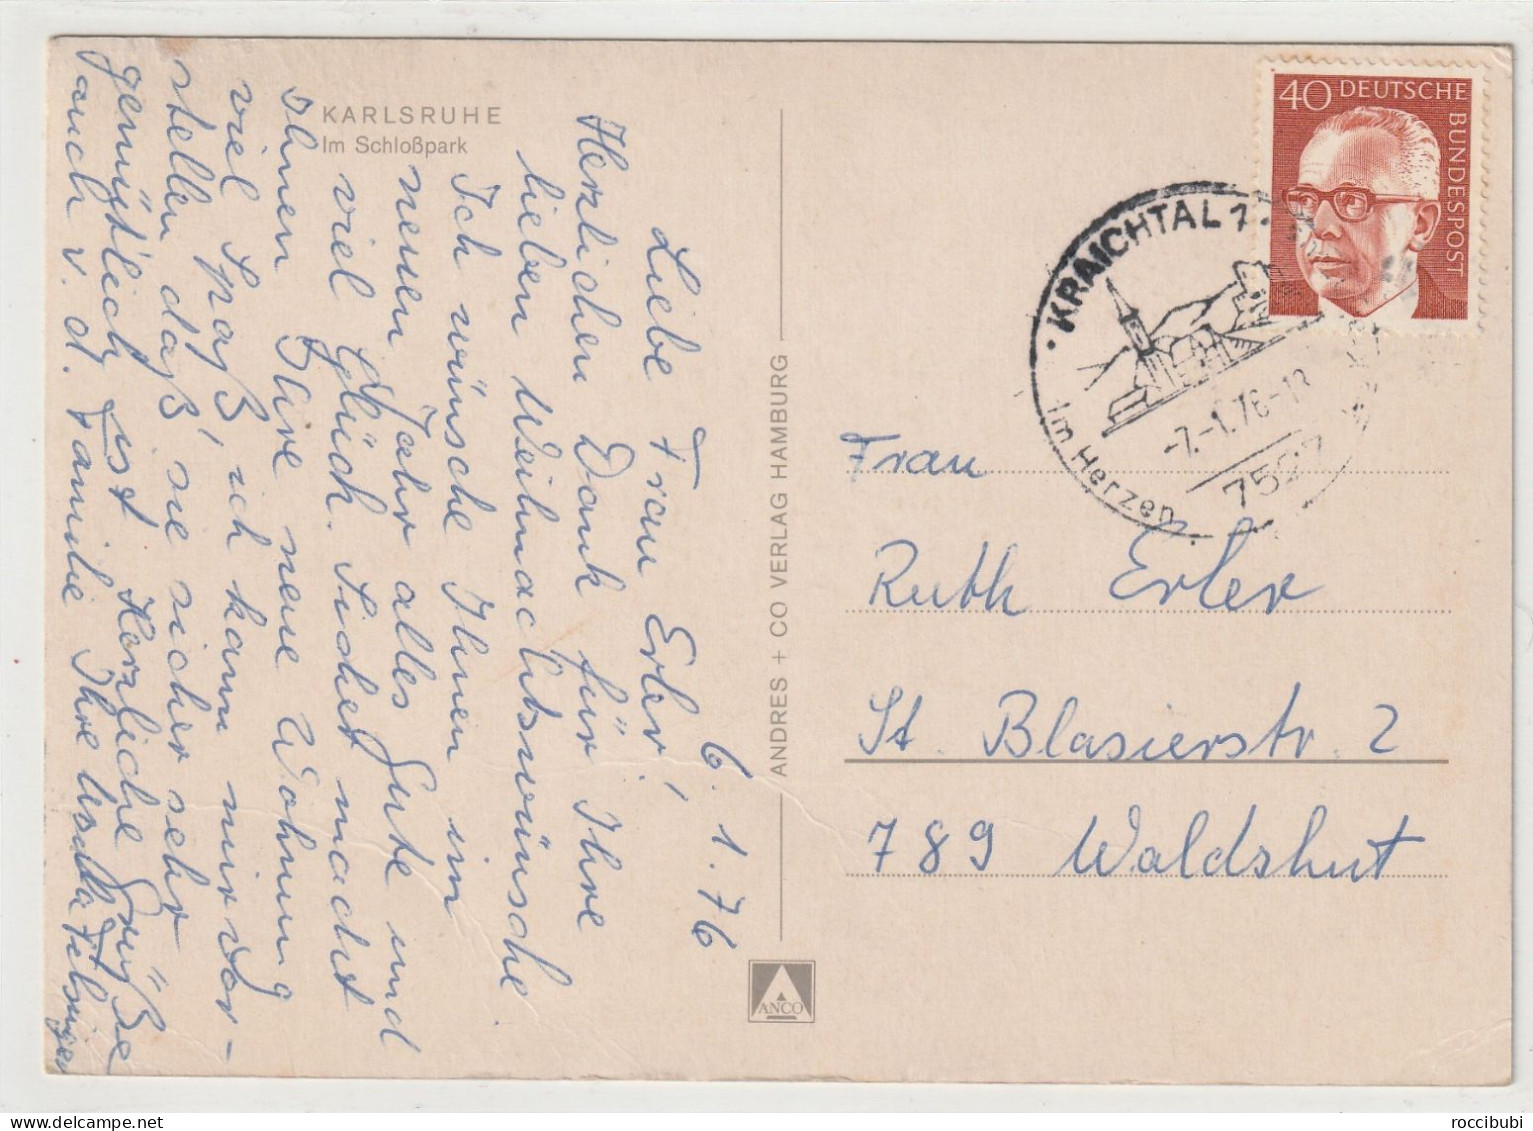 KARLSRUHE
Im Schloßpark
6.1.76
Liebe Frau Erler!
Herzlichen Dank für Ihre
lieben Weihnachtswünsche.
Ich wünsche Ihnen im
neuen Jahr alles Gute und
viel Glück. Sicher macht
Ihnen Ihre neue Wohnung
viel Spaß, ich kann mir vor-
stellen daß sie sicher sehr
gemütlich ist. Herzliche Grüße
auch v. d. Familie Ihre
ANDRES + CO VERLAG HAMBURG
ANCO
40 DEUTSCHE
BUNDESPOST
· KRAICHTAL 1 ·
im Herzen
-7.-1.76-18
7527
Frau
Ruth Erler
St. Blasierstr. 2
789 Waldshut
roccibubi